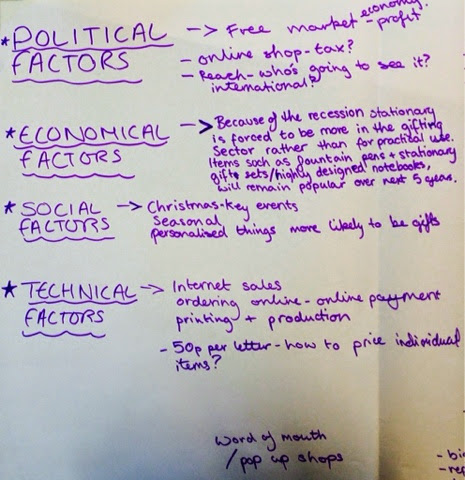 *POLITICAL FACTORS -> Free market economy - profit
- online shop - tax?
- Reach - who's going to see it?
international?
*ECONOMICAL FACTORS -> Because of the recession stationary
is forced to be more in the gifting
Sector rather than for practical use.
Items such as fountain pens + stationary
gift sets/highly designed notebooks,
will remain popular over next 5 years.
*SOCIAL FACTORS -> Christmas - key events
Seasonal
personalised things more likely to be gifts
*TECHNICAL FACTORS -> Internet sales
ordering online - online payment
printing + production
- 50p per letter - how to price individual
items?
word of mouth
/pop up shops